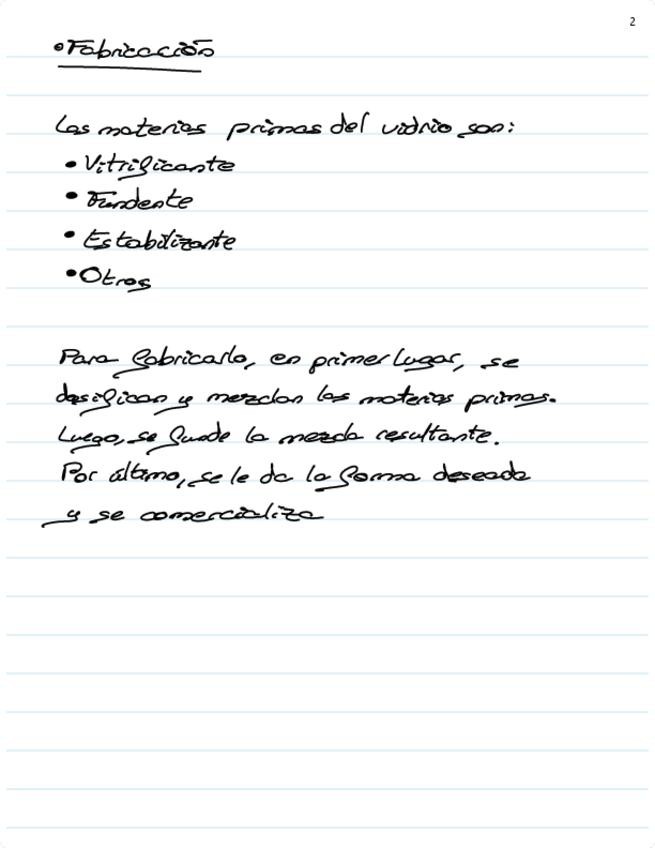 2
• Fabricación
Las materias primas del vidrio son:
• Vitrificante
• Fundente
• Estabilizante
• Otros
Para fabricarlo, en primer lugar, se
dosifican y mezclan las materias primas.
Luego, se funde la mezcla resultante.
Por último, se le da la forma deseada
y se comercializa